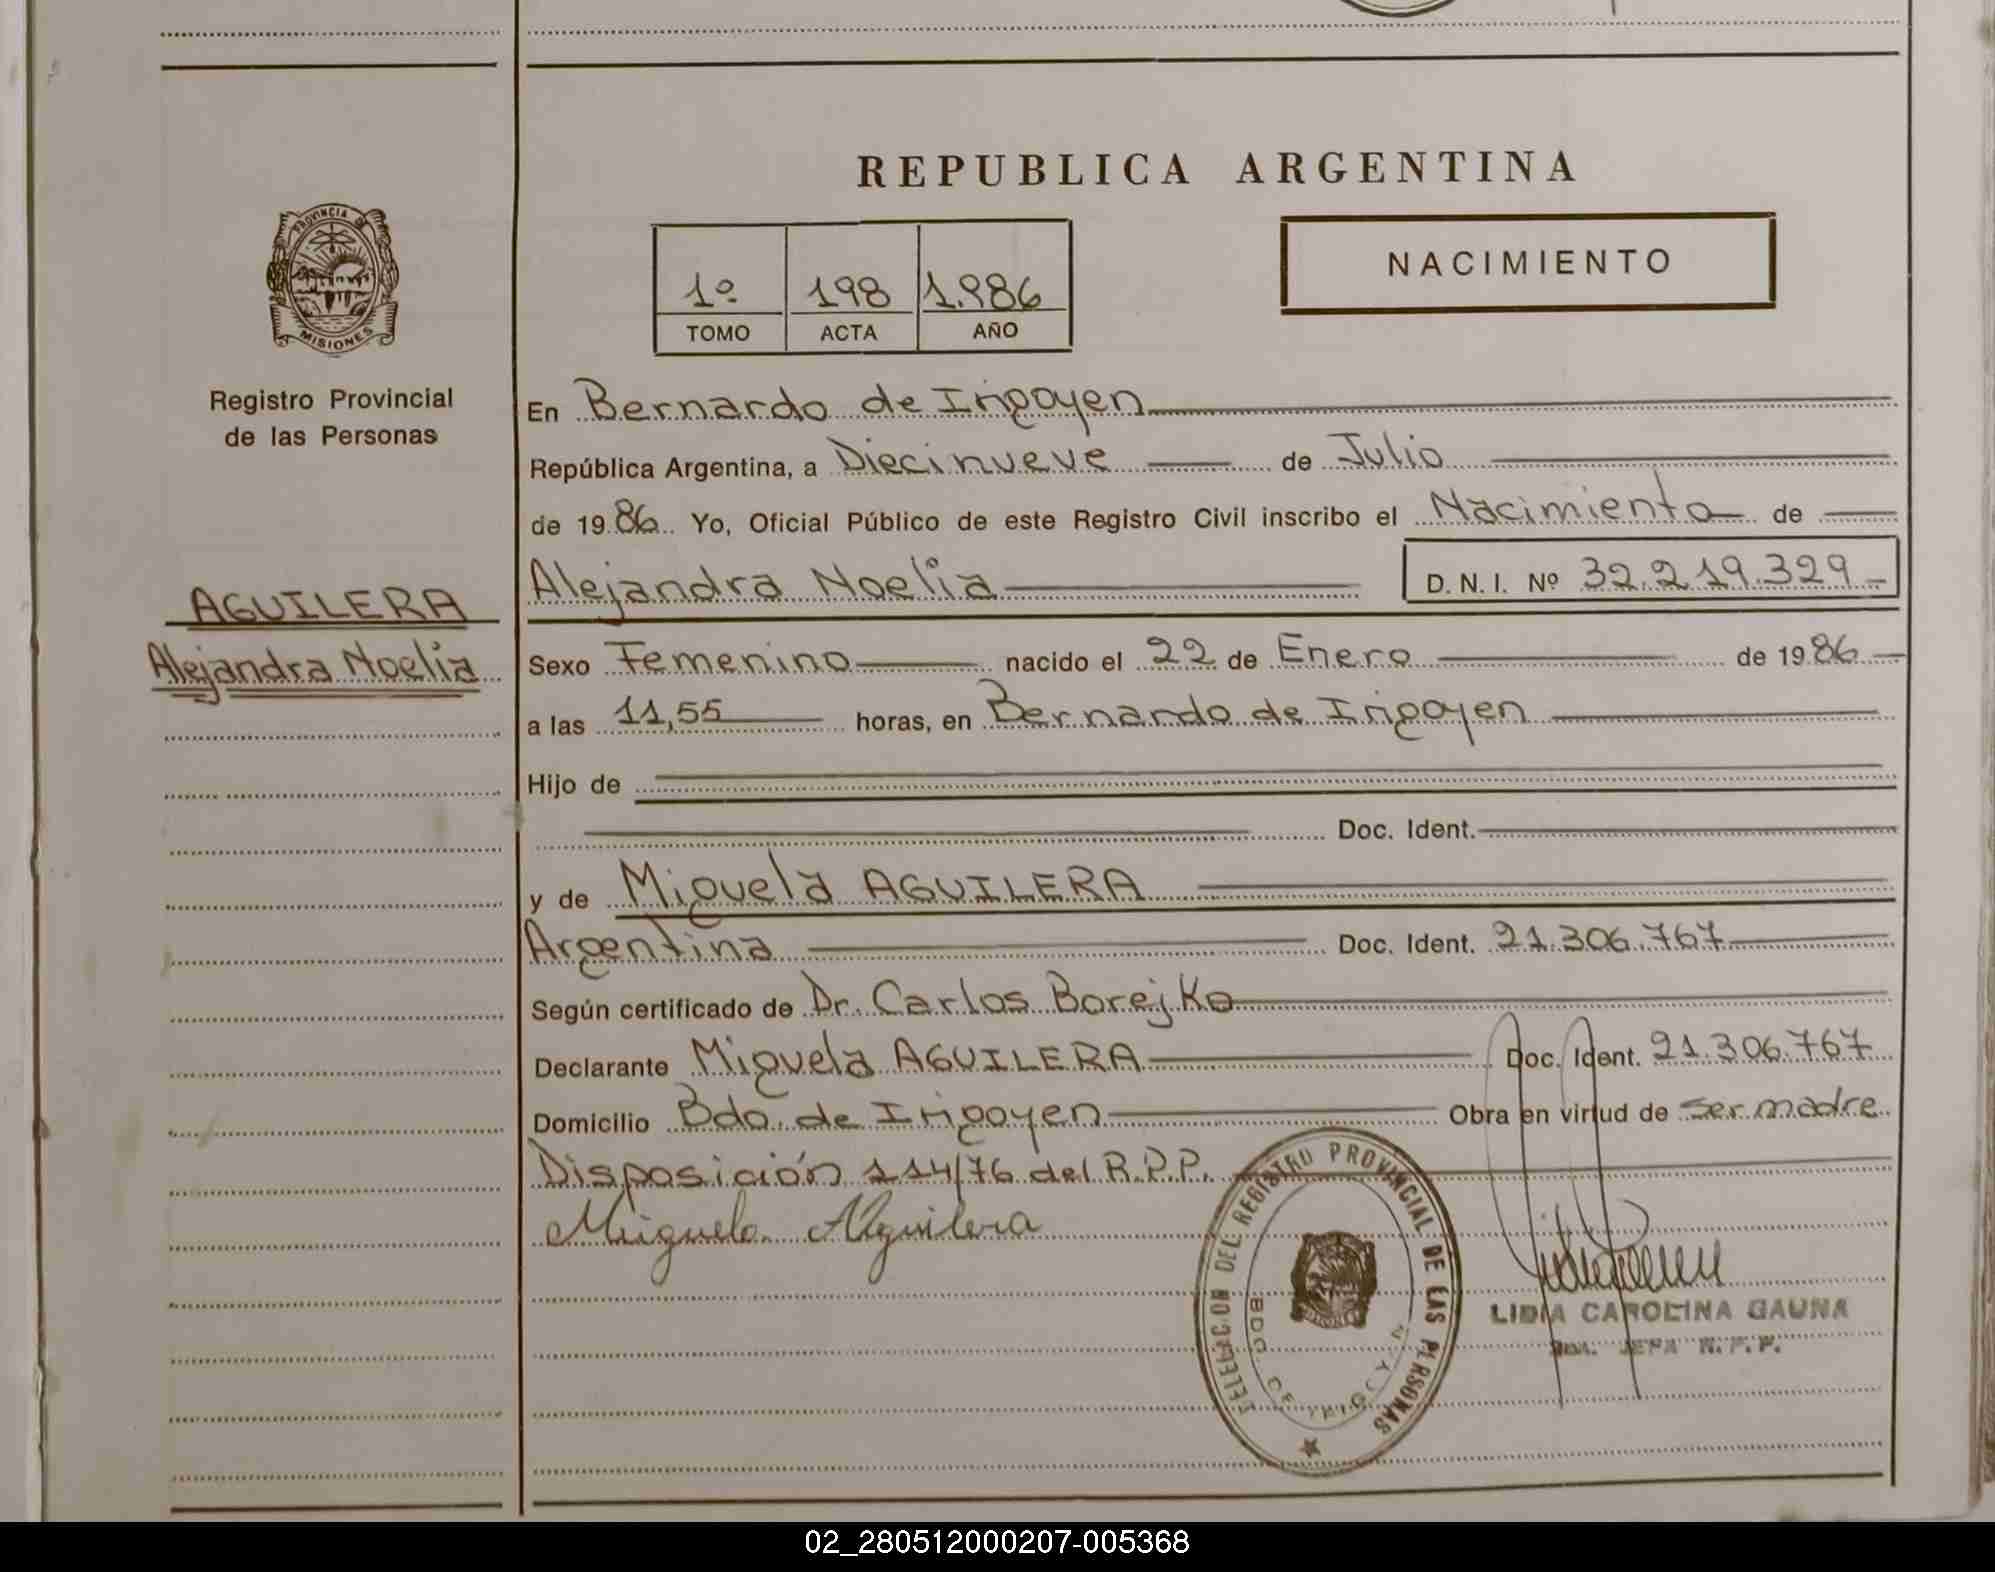 REPUBLICA ARGENTINA
PROVINCIA DE
MISIONES
Registro Provincial
de las Personas
AGUILERA
Alejandra Noelia
1º 198 1.986
TOMO ACTA AÑO
NACIMIENTO
En Bernardo de Irigoyen
República Argentina, a Diecinueve de Julio
de 1986 Yo, Oficial Público de este Registro Civil inscribo el Nacimiento de
Alejandra Noelia D.N.I. Nº 32.219.329
Sexo Femenino nacido el 22 de Enero de 1986
a las 11,55 horas, en Bernardo de Irigoyen
Hijo de
Doc. Ident.
y de Miguela AGUILERA
Argentina Doc. Ident. 21.306.767
Según certificado de Dr. Carlos Borejko
Declarante Miguela AGUILERA Doc. Ident. 21.306.767
Domicilio Bdo. de Irigoyen Obra en virtud de ser madre
Disposición 114/76 del R.P.P.
Miguela Aguilera
DELEGACION DEL REGISTRO PROVINCIAL DE LAS PERSONAS
BDO. DE IRIGOYEN
LIDIA CAROLINA GAUNA
JEFA R.P.P.
02_280512000207-005368